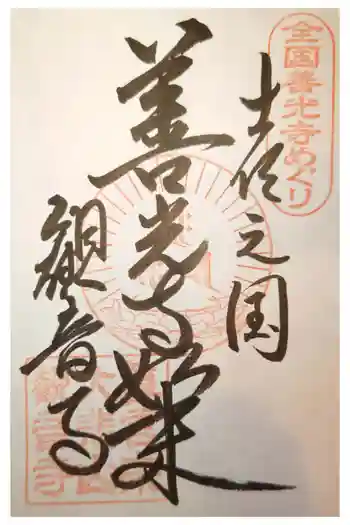 全国善光寺めぐり
土佐之国
善光寺如来
観音寺